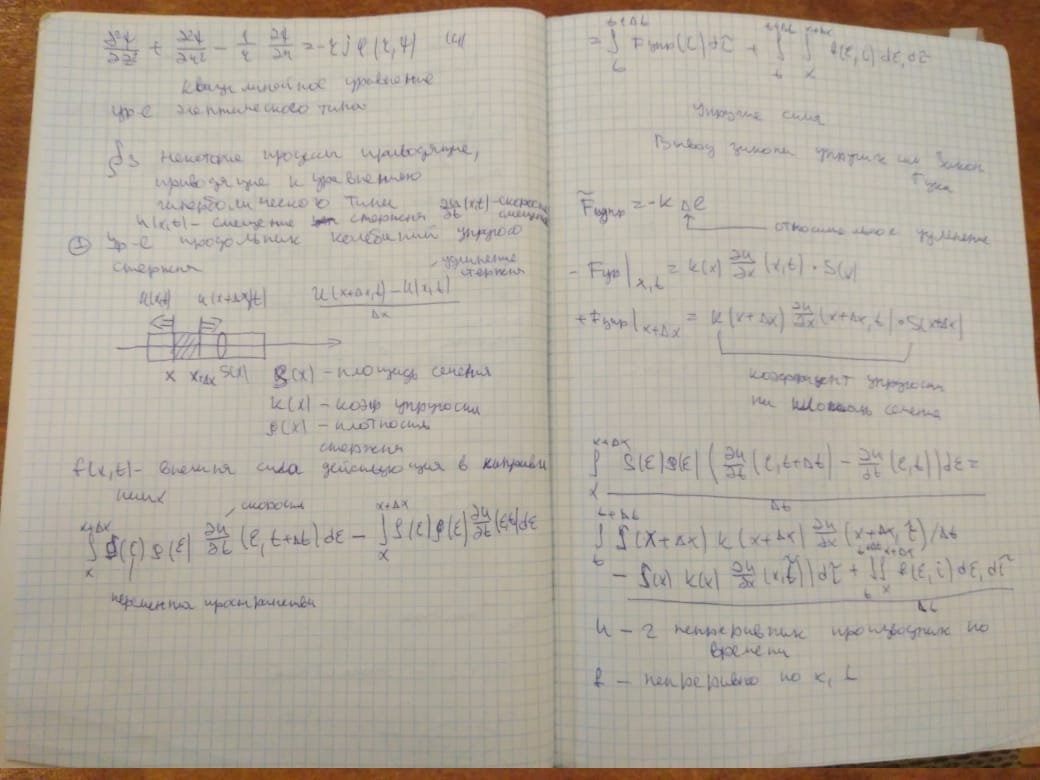 ∂²ψ/∂z² + ∂²ψ/∂r² − 1/r ∂ψ/∂r = −r j φ(r, ψ) (4)
квазилинейное уравнение
ур-е элептического типа
§3 Некоторые процессы приводящие,
приводящие к уравнению
гиперболического типа ∂u/∂t (x,t) – скорость
u(x,t) – смещение стержня смещения
① Ур-е продольных колебаний упругого
стержня
удлинение
стержня
u(x,t) u(x+Δx,t) (u(x+Δx,t) − u(x,t))/Δx
x x+Δx S(x) S(x) – площадь сечения
k(x) – коэф упругости
ρ(x) – плотность
стержня
f(x,t) – внешняя сила действующая в
скорость
∫ₓ^{x+Δx} S(ξ) ρ(ξ) ∂u/∂t (ξ, t+Δt) dξ − ∫ₓ^{x+Δx} S(ξ) ρ(ξ) ∂u/∂t (ξ,t) dξ
переменная пространства
= ∫ₜ^{t+Δt} Fупр(τ) dτ + ∫ₜ^{t+Δt} ∫ₓ^{x+Δx} f(ξ,τ) dξ dτ
Упругие сила
Вывод закона упругих сил Закон
Гука
F̃упр = −k Δl
относительное удлинение
− Fупр|ₓ,ₜ = k(x) ∂u/∂x (x,t) · S(x)
+ Fупр|ₓ₊Δₓ = k(x+Δx) ∂u/∂x (x+Δx, t) · S(x+Δx)
коэффициент упругости
на площадь сечения
∫ₓ^{x+Δx} S(ξ) ρ(ξ) (∂u/∂t (ξ, t+Δt) − ∂u/∂t (ξ,t)) dξ =
Δt
∫ₜ^{t+Δt} S(x+Δx) k(x+Δx) ∂u/∂x (x+Δx, τ) /Δt
− S(x) k(x) ∂u/∂x (x,τ)) dτ + ∫ₜ^{t+Δt} ∫ₓ^{x+Δx} f(ξ,τ) dξ dτ
Δt
u – 2 непрерывных производных по
времени
f – непрерывно по x, t